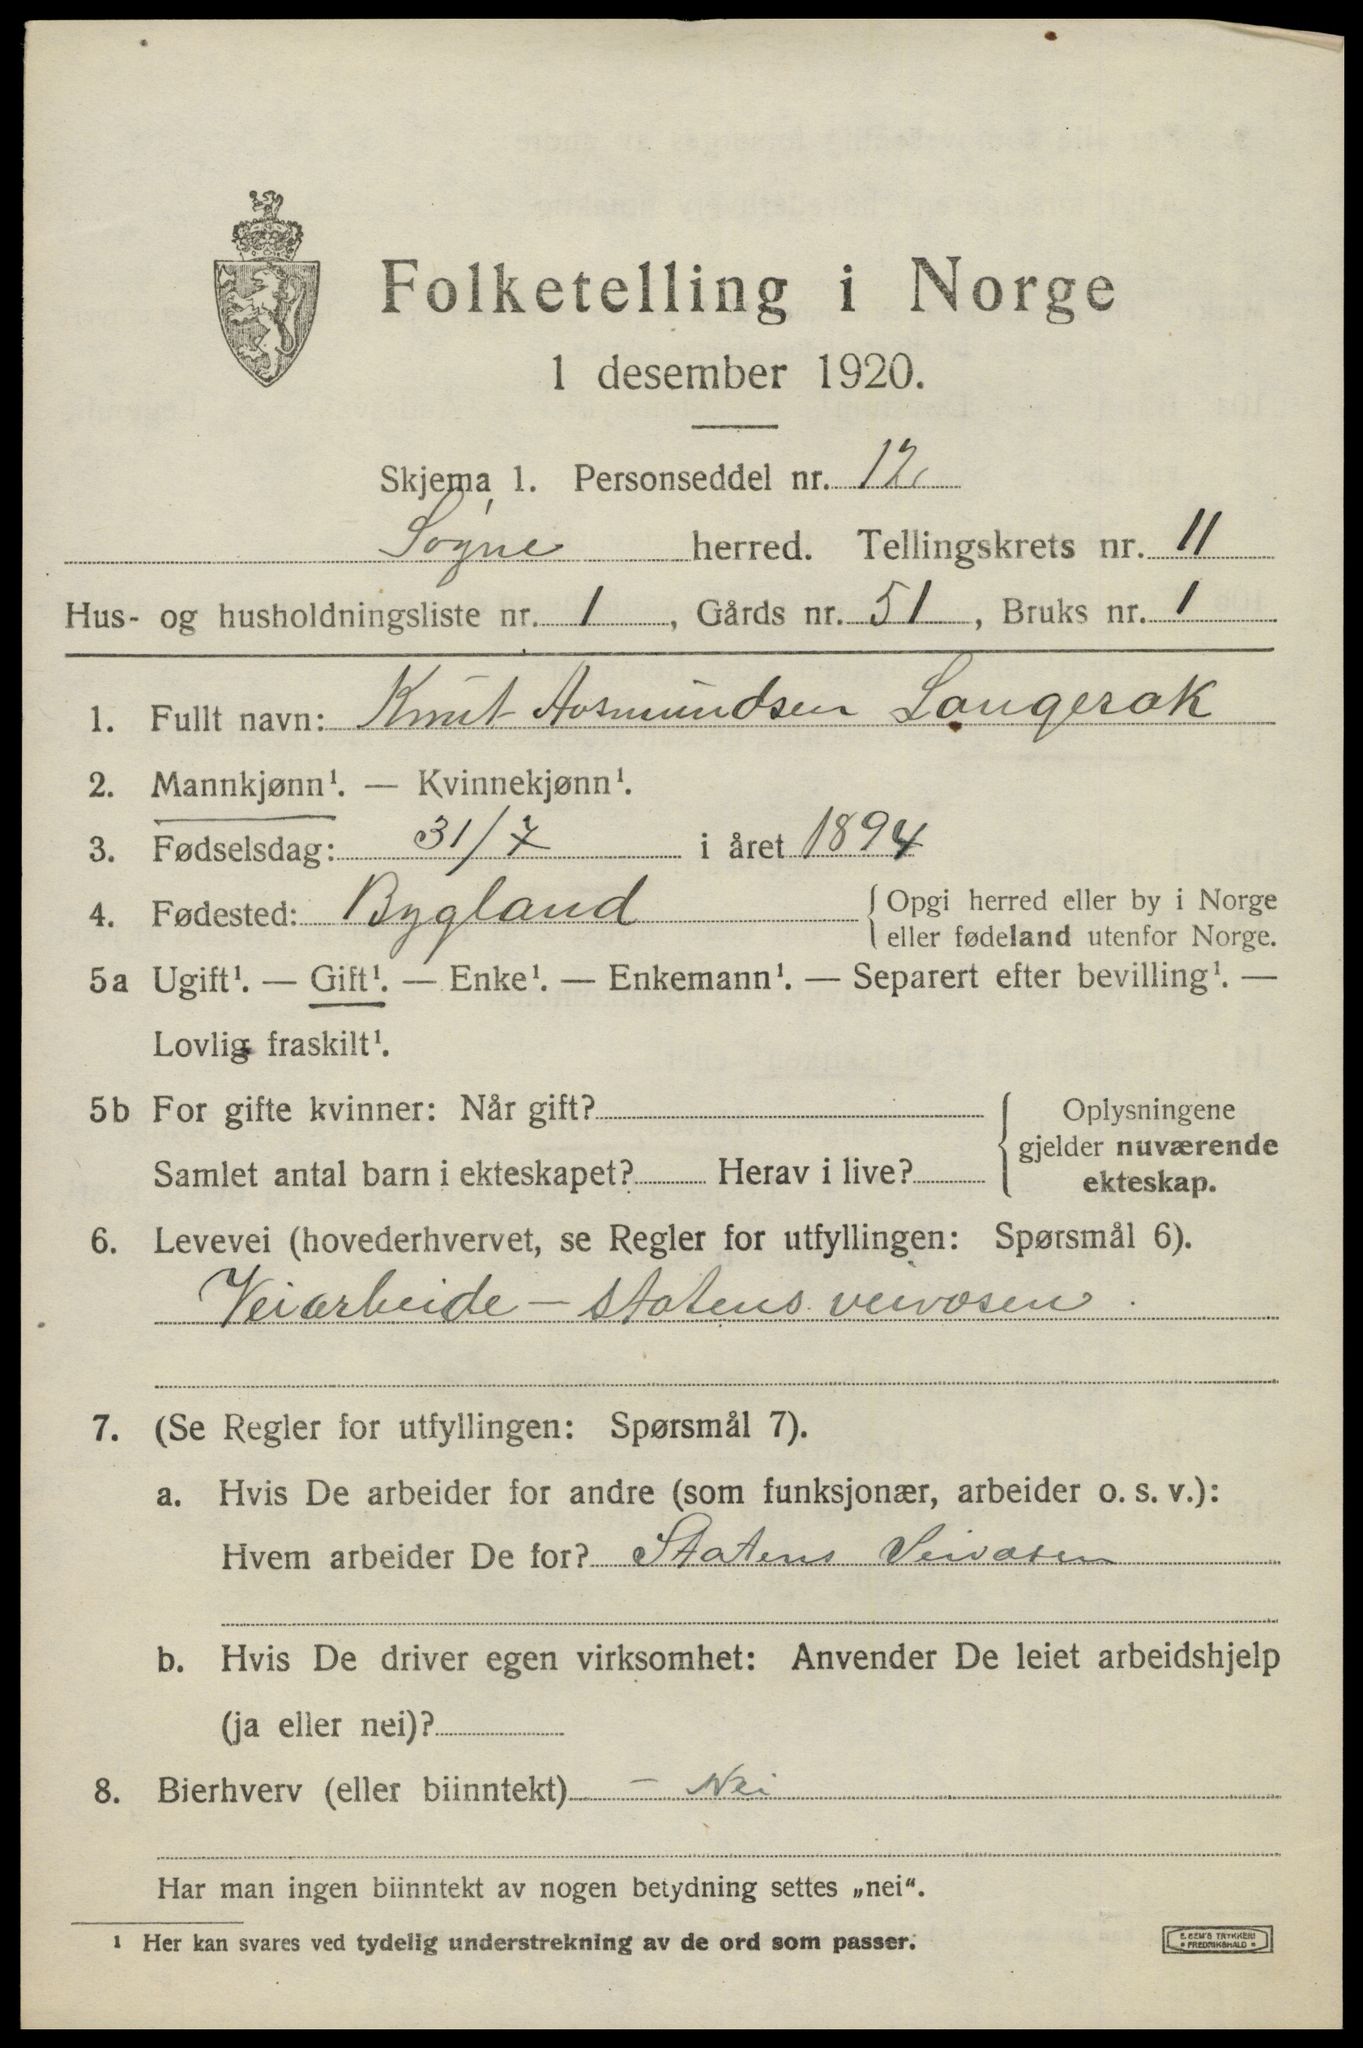 Folketelling i Norge
1 desember 1920.
Skjema 1. Personseddel nr. 12
Søgne herred. Tellingskrets nr. 11
Hus- og husholdningsliste nr. 1, Gårds nr. 51, Bruks nr. 1
1. Fullt navn: Knut Aosmundsen Langerak
2. Mannkjønn¹. — Kvinnekjønn¹.
3. Fødselsdag: 31/7 i året 1894
4. Fødested: Bygland { Opgi herred eller by i Norge
eller fødeland utenfor Norge.
5a Ugift¹. — Gift¹. — Enke¹. — Enkemann¹. — Separert efter bevilling¹. —
Lovlig fraskilt¹.
5b For gifte kvinner: Når gift?
Samlet antal barn i ekteskapet? Herav i live?
{ Oplysningene
gjelder nuværende
ekteskap.
6. Levevei (hovederhvervet, se Regler for utfyllingen: Spørsmål 6).
Veiarbeide – statens veivæsen.
7. (Se Regler for utfyllingen: Spørsmål 7).
a. Hvis De arbeider for andre (som funksjonær, arbeider o. s. v.):
Hvem arbeider De for? Statens Veivæsen
b. Hvis De driver egen virksomhet: Anvender De leiet arbeidshjelp
(ja eller nei)?
8. Bierhverv (eller biinntekt) – Nei
Har man ingen biinntekt av nogen betydning settes „nei“.
¹ Her kan svares ved tydelig understrekning av de ord som passer.
E. SEM'S TRYKKERI
• FREDRIKSHALD •